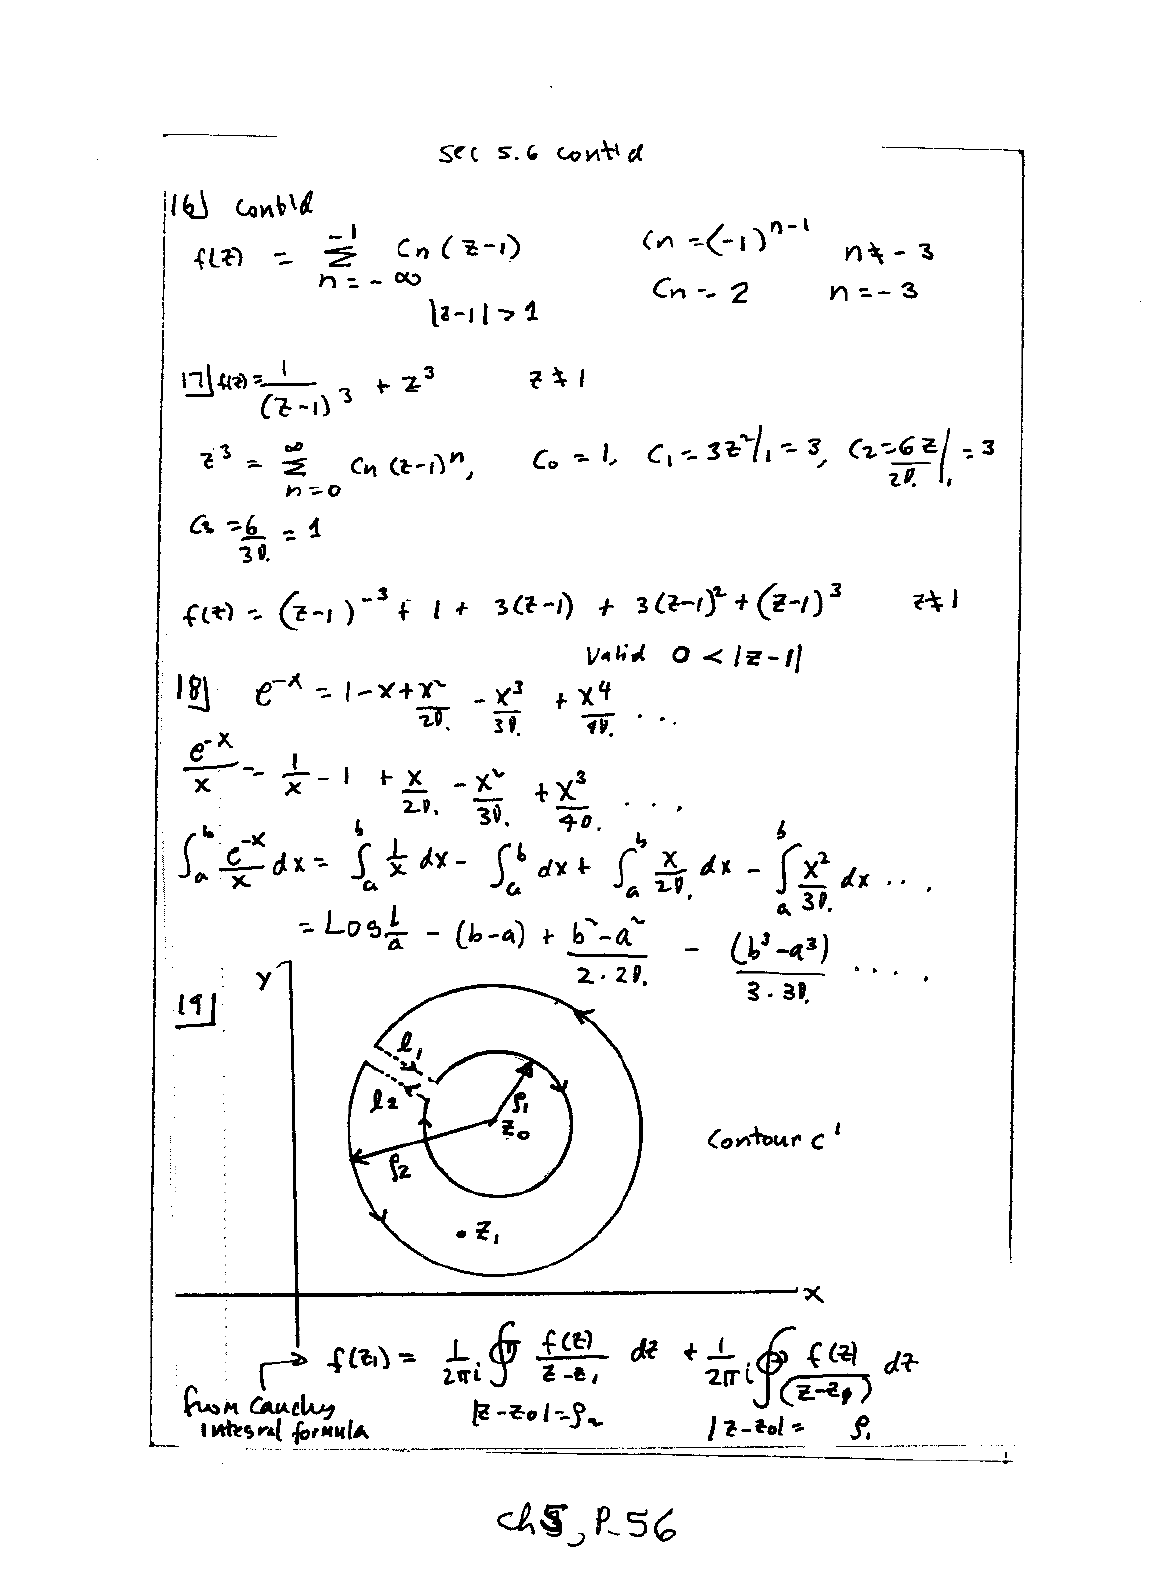 sec 5.6 cont'd
16] cont'd
f(z) = Σ_{n=-∞}^{-1} Cn (z-1)   Cn = (-1)^{n-1}   n ≠ -3
|z-1| > 1   Cn = 2   n = -3
17] f(z) = 1/(z-1)^3 + z^3   z ≠ 1
z^3 = Σ_{n=0}^{∞} Cn (z-1)^n, C0 = 1, C1 = 3z^2|_1 = 3, C2 = 6z/2!|_1 = 3
C3 = 6/3! = 1
f(z) = (z-1)^{-3} + 1 + 3(z-1) + 3(z-1)^2 + (z-1)^3   z ≠ 1
Valid 0 < |z-1|
18] e^{-x} = 1 - x + x^2/2! - x^3/3! + x^4/4! ...
e^{-x}/x = 1/x - 1 + x/2! - x^2/3! + x^3/4! ....
∫_a^b e^{-x}/x dx = ∫_a^b 1/x dx - ∫_a^b dx + ∫_a^b x/2! dx - ∫_a^b x^2/3! dx ...
= Log b/a - (b-a) + (b^2-a^2)/(2·2!) - (b^3-a^3)/(3·3!) ....
19]
y
l1
l2
ρ1
z0
ρ2
Contour c'
• z1
x
f(z1) = 1/2πi ∮ f(z)/(z-z1) dz + 1/2πi ∮ f(z)/(z-z1) dz
from Cauchy |z-z0| = ρ2   |z-z0| = ρ1
integral formula
ch5, P-56